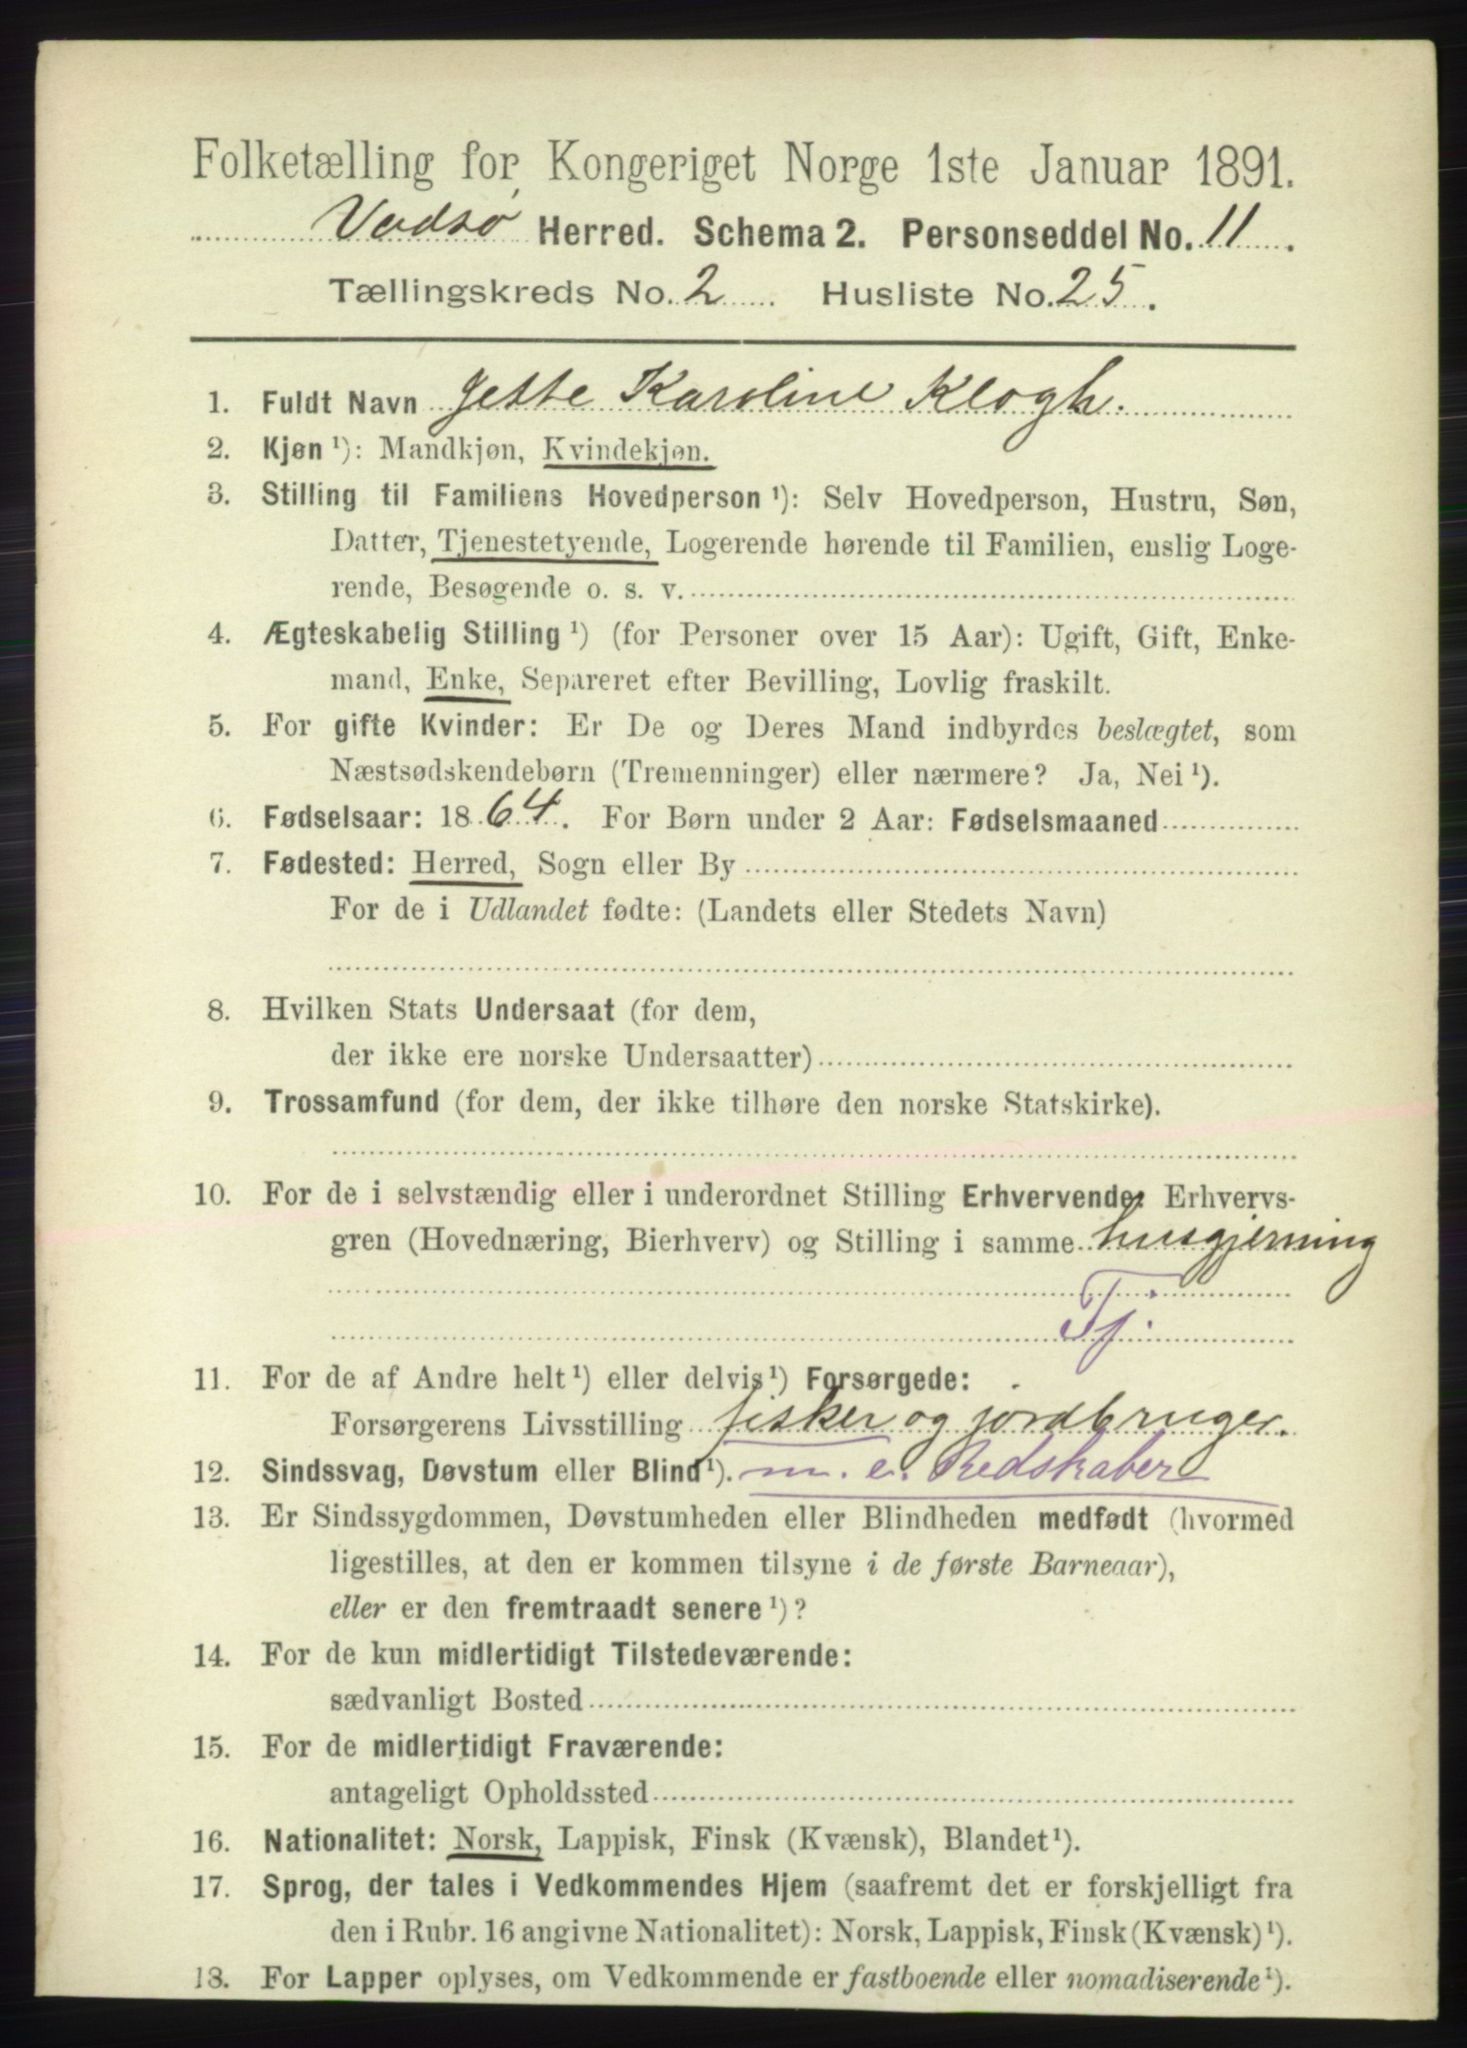 Folketælling for Kongeriget Norge 1ste Januar 1891.
Vadsø Herred. Schema 2. Personseddel No. 11.
Tællingskreds No. 2. Husliste No. 25.
1. Fuldt Navn Jette Karoline Klogh.
2. Kjøn ¹): Mandkjøn, Kvindekjøn.
3. Stilling til Familiens Hovedperson ¹): Selv Hovedperson, Hustru, Søn,
Datter, Tjenestetyende, Logerende hørende til Familien, enslig Loge-
rende, Besøgende o. s. v.
4. Ægteskabelig Stilling ¹) (for Personer over 15 Aar): Ugift, Gift, Enke-
mand, Enke, Separeret efter Bevilling, Lovlig fraskilt.
5. For gifte Kvinder: Er De og Deres Mand indbyrdes beslægtet, som
Næstsødskendebørn (Tremenninger) eller nærmere? Ja, Nei ¹).
6. Fødselsaar: 1864. For Børn under 2 Aar: Fødselsmaaned
7. Fødested: Herred, Sogn eller By
For de i Udlandet fødte: (Landets eller Stedets Navn)
8. Hvilken Stats Undersaat (for dem,
der ikke ere norske Undersaatter)
9. Trossamfund (for dem, der ikke tilhøre den norske Statskirke).
10. For de i selvstændig eller i underordnet Stilling Erhvervende: Erhvervs-
gren (Hovednæring, Bierhverv) og Stilling i samme husgjerning
Tj.
11. For de af Andre helt ¹) eller delvis ¹) Forsørgede:
Forsørgerens Livsstilling fisker og jordbruger.
12. Sindssvag, Døvstum eller Blind ¹). m. e. Redskaber
13. Er Sindssygdommen, Døvstumheden eller Blindheden medfødt (hvormed
ligestilles, at den er kommen tilsyne i de første Barneaar),
eller er den fremtraadt senere ¹)?
14. For de kun midlertidigt Tilstedeværende:
sædvanligt Bosted
15. For de midlertidigt Fraværende:
antageligt Opholdssted
16. Nationalitet: Norsk, Lappisk, Finsk (Kvænsk), Blandet ¹).
17. Sprog, der tales i Vedkommendes Hjem (saafremt det er forskjelligt fra
den i Rubr. 16 angivne Nationalitet): Norsk, Lappisk, Finsk (Kvænsk) ¹).
18. For Lapper oplyses, om Vedkommende er fastboende eller nomadiserende ¹).